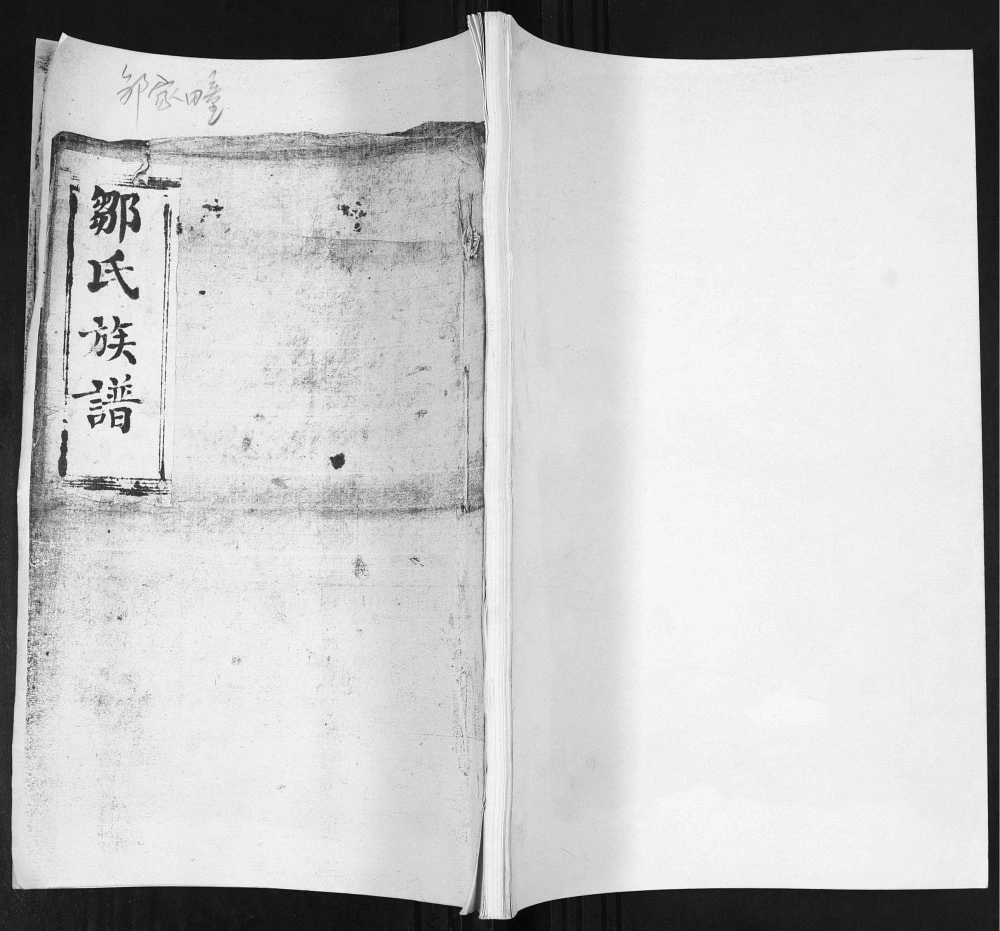 邹家疃
鄒氏族譜